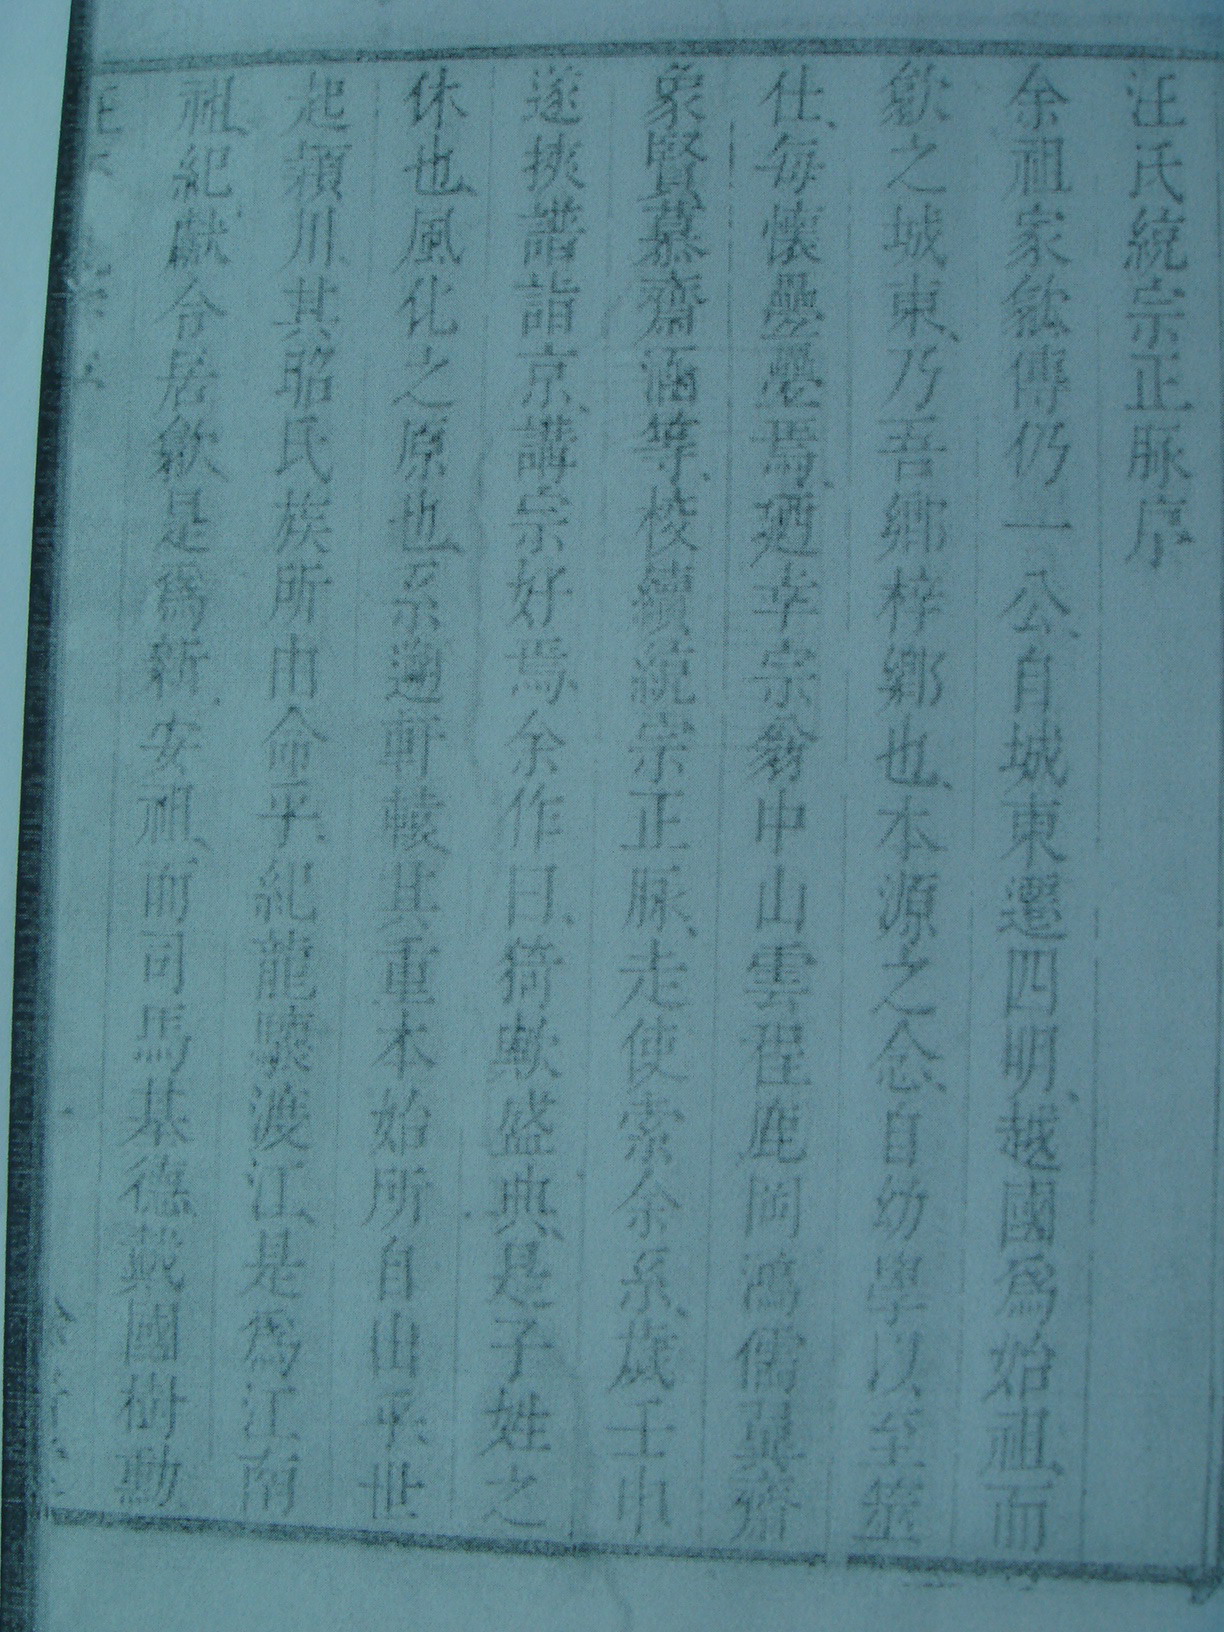 汪氏統宗正脉序
余祖家歙傳仍一公自城東遷四明越國爲始祖而
歙之城東乃吾鄉梓鄉也本源之念自幼學以至筮
仕每懷壘壘焉廼幸宗翁中山雲程鹿岡鴻儒巽齋
象賢慕齋涵等校續統宗正脉走使索余系歲壬申
遂挾譜詣京講宗好焉余作曰猗歟盛典是子姓之
休也風化之原也系遡軒轅其重本始所自出乎世
起潁川其昭氏族所由命乎紀龍驤渡江是爲江南
祖紀獻令居歙是爲新安祖而司馬基德戴國樹勳